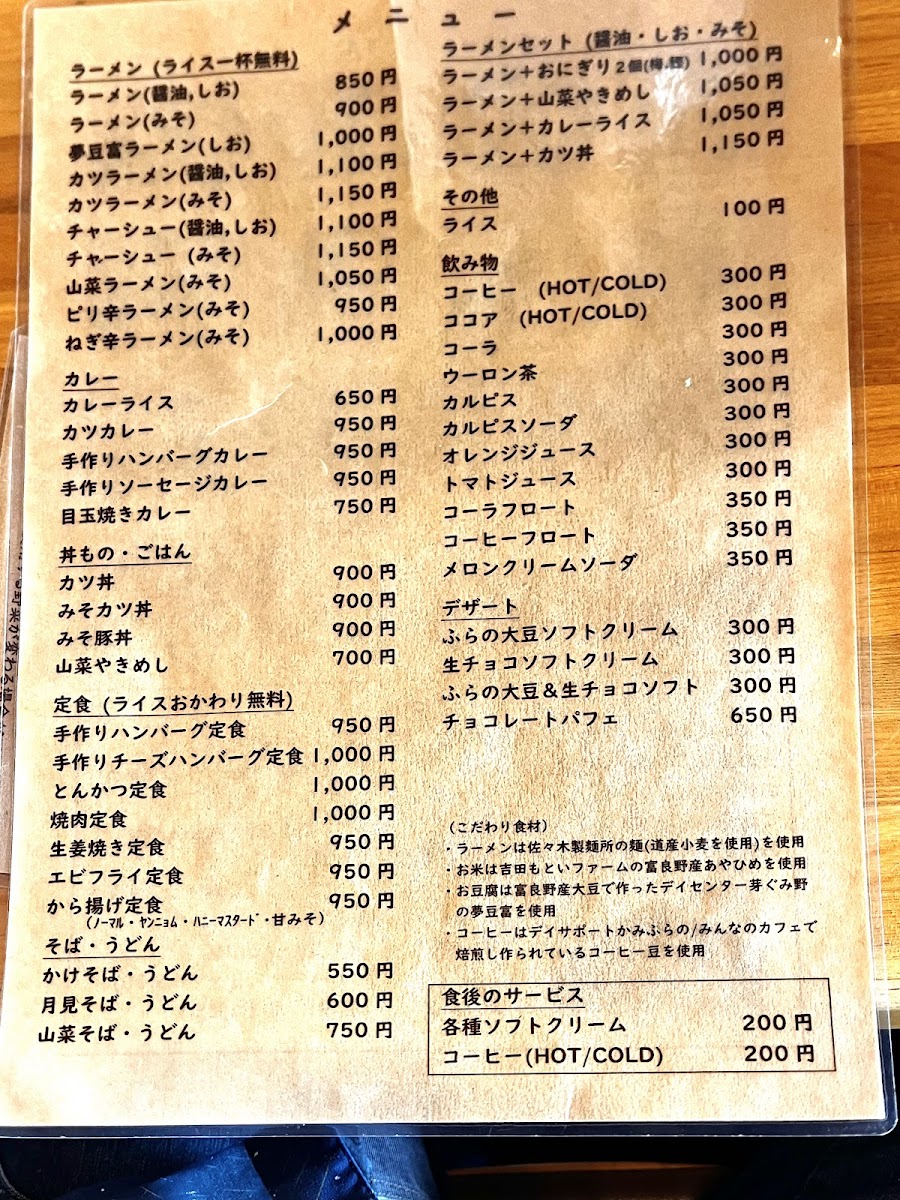 メニュー
ラーメン (ライス一杯無料)
ラーメン(醤油,しお) 850円
ラーメン(みそ) 900円
夢豆富ラーメン(しお) 1,000円
カツラーメン(醤油,しお) 1,100円
カツラーメン(みそ) 1,150円
チャーシュー(醤油,しお) 1,100円
チャーシュー (みそ) 1,150円
山菜ラーメン(みそ) 1,050円
ピリ辛ラーメン(みそ) 950円
ねぎ辛ラーメン(みそ) 1,000円
カレー
カレーライス 650円
カツカレー 950円
手作りハンバーグカレー 950円
手作りソーセージカレー 950円
目玉焼きカレー 750円
丼もの・ごはん
カツ丼 900円
みそカツ丼 900円
みそ豚丼 900円
山菜やきめし 700円
定食 (ライスおかわり無料)
手作りハンバーグ定食 950円
手作りチーズハンバーグ定食 1,000円
とんかつ定食 1,000円
焼肉定食 1,000円
生姜焼き定食 950円
エビフライ定食 950円
から揚げ定食 950円
(ノーマル・ヤンニョム・ハニーマスタード・甘みそ)
そば・うどん
かけそば・うどん 550円
月見そば・うどん 600円
山菜そば・うどん 750円
ラーメンセット (醤油・しお・みそ)
ラーメン+おにぎり2個 1,000円
ラーメン+山菜やきめし 1,050円
ラーメン+カレーライス 1,050円
ラーメン+カツ丼 1,150円
その他
ライス 100円
飲み物
コーヒー (HOT/COLD) 300円
ココア (HOT/COLD) 300円
コーラ 300円
ウーロン茶 300円
カルピス 300円
カルピスソーダ 300円
オレンジジュース 300円
トマトジュース 300円
コーラフロート 350円
コーヒーフロート 350円
メロンクリームソーダ 350円
デザート
ふらの大豆ソフトクリーム 300円
生チョコソフトクリーム 300円
ふらの大豆&生チョコソフト 300円
チョコレートパフェ 650円
(こだわり食材)
・ラーメンは佐々木製麺所の麺(道産小麦を使用)を使用
・お米は吉田もといファームの富良野産あやひめを使用
・お豆腐は富良野産大豆で作ったデイセンター芽ぐみ野
の夢豆富を使用
・コーヒーはデイサポートかみふらの/みんなのカフェで
焙煎し作られているコーヒー豆を使用
食後のサービス
各種ソフトクリーム 200円
コーヒー(HOT/COLD) 200円